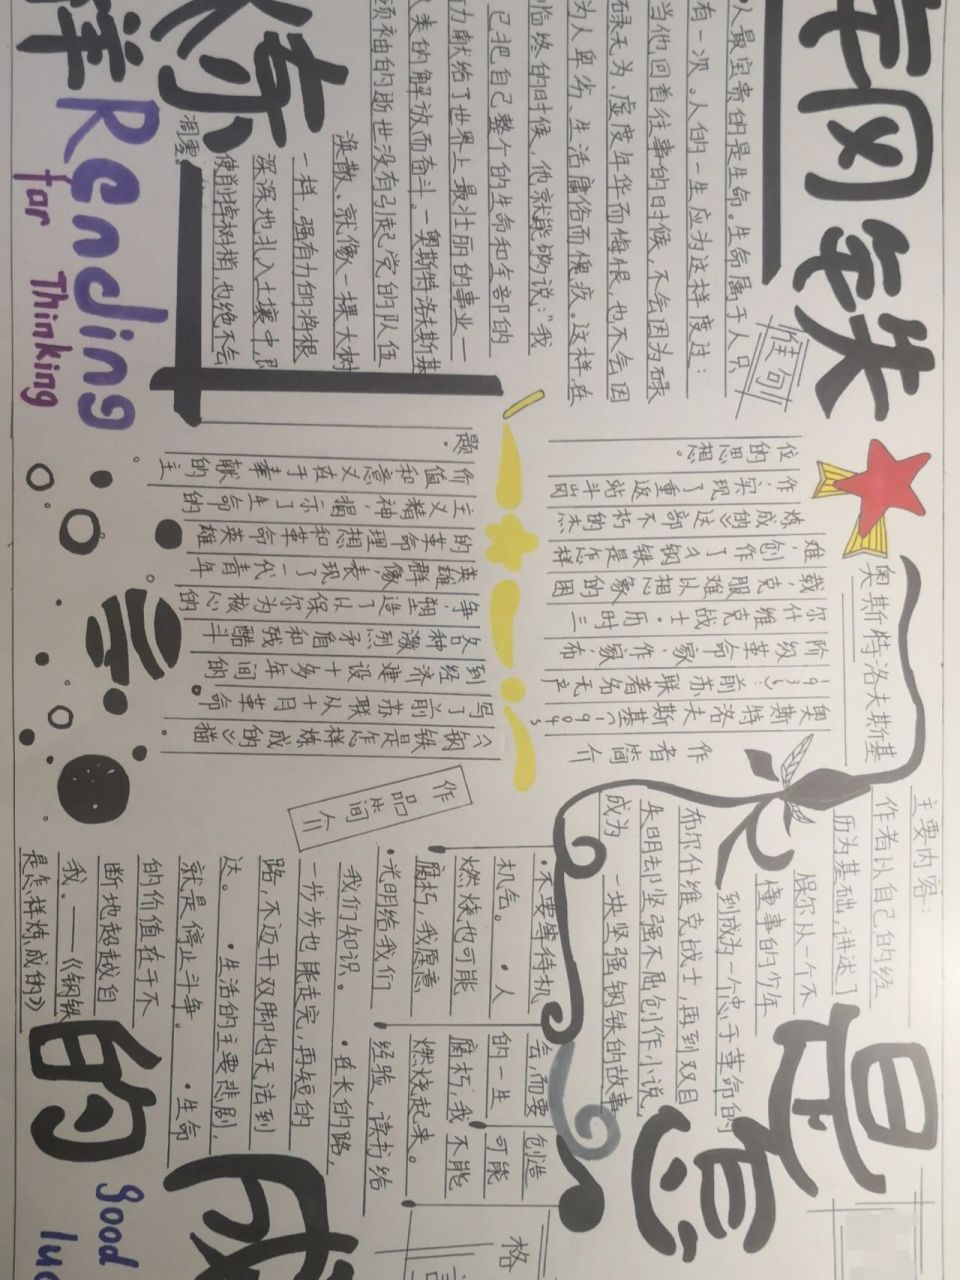 钢铁
是怎
样炼
成的
佳句
人最宝贵的是生命。生命属于人只
有一次。人的一生应为这样度过:
当他回首往事的时候,不会因为碌
碌无为、虚度年华而悔恨,也不会因
为人卑劣、生活庸俗而愧疚。这样,在
临终的时候,他就能够说:“我
已把自己整个的生命和全部的
力献给了世界上最壮丽的事业—
人类的解放而奋斗。—奥斯特洛夫斯基
领袖的逝世没有引起党的队伍
涣散、就像一棵大树
一样,强有力的将根
深深地扎入土壤中,即
使削掉树梢,也绝不会
凋零。
Reading
for Thinking
奥斯特洛夫斯基
作者简介
奥斯特洛夫斯基(1904~
1936):前苏联著名无产
阶级革命家,作家,布
尔什维克战士。历时三
载,克服难以想象的困
难,创作了《钢铁是怎样
炼成》这部不朽的杰
作,实现了重返战斗岗
位的思想。
作品简介
《钢铁是怎样炼成的》描
写了前苏联从十月革命
到经济建设十多年间的
各种激烈矛盾和残酷斗
争,塑造了以保尔为核心的
英雄群像,表现了一代青年
的革命理想和革命英雄
主义精神,揭示了生命的
价值和意义在于奉献的主
题.
主要内容:
作者从自己的经
历为基础,讲述了
保尔从一个不
懂事的少年
到成为一个忠于革命的
布尔什维克战士,再到双目
失明却坚强不屈创作小说,
成为一块坚强钢铁的故事
·不要等待机会,而要创造
机会。·人的一生可能
燃烧也可能腐朽,我不能
腐朽,我愿意燃烧起来。
·光明给我们经验,读书给
我们知识。·在长的路,
一步步也能走完,再短的
路,不迈开双脚也无法到
达。·生活的主要悲剧,
就是停止斗争。·生命
的价值在于不
断地超越自
我.——《钢铁
是怎样炼成的》
格
good